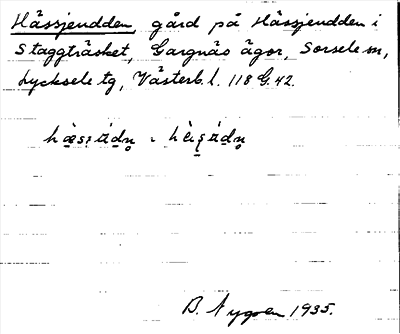 Hässjeudden, gård på Hässjeudden i
Staggträsket, Gargnäs ägor, Sorsele sn,
Lycksele tg, Västerb. l. 118 G. 42.
B. Nygren 1935.